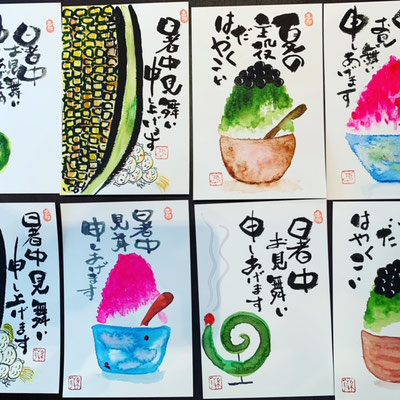 暑中
お見舞い
暑中見舞い
申し上げます
夏の
主役
だ
はやくこい
暑中
お見舞い
申しあげます
暑中見舞い
申し上げます
暑中
見舞
申しあげます
暑中
お見舞い
申しあげます
だ
はやくこい